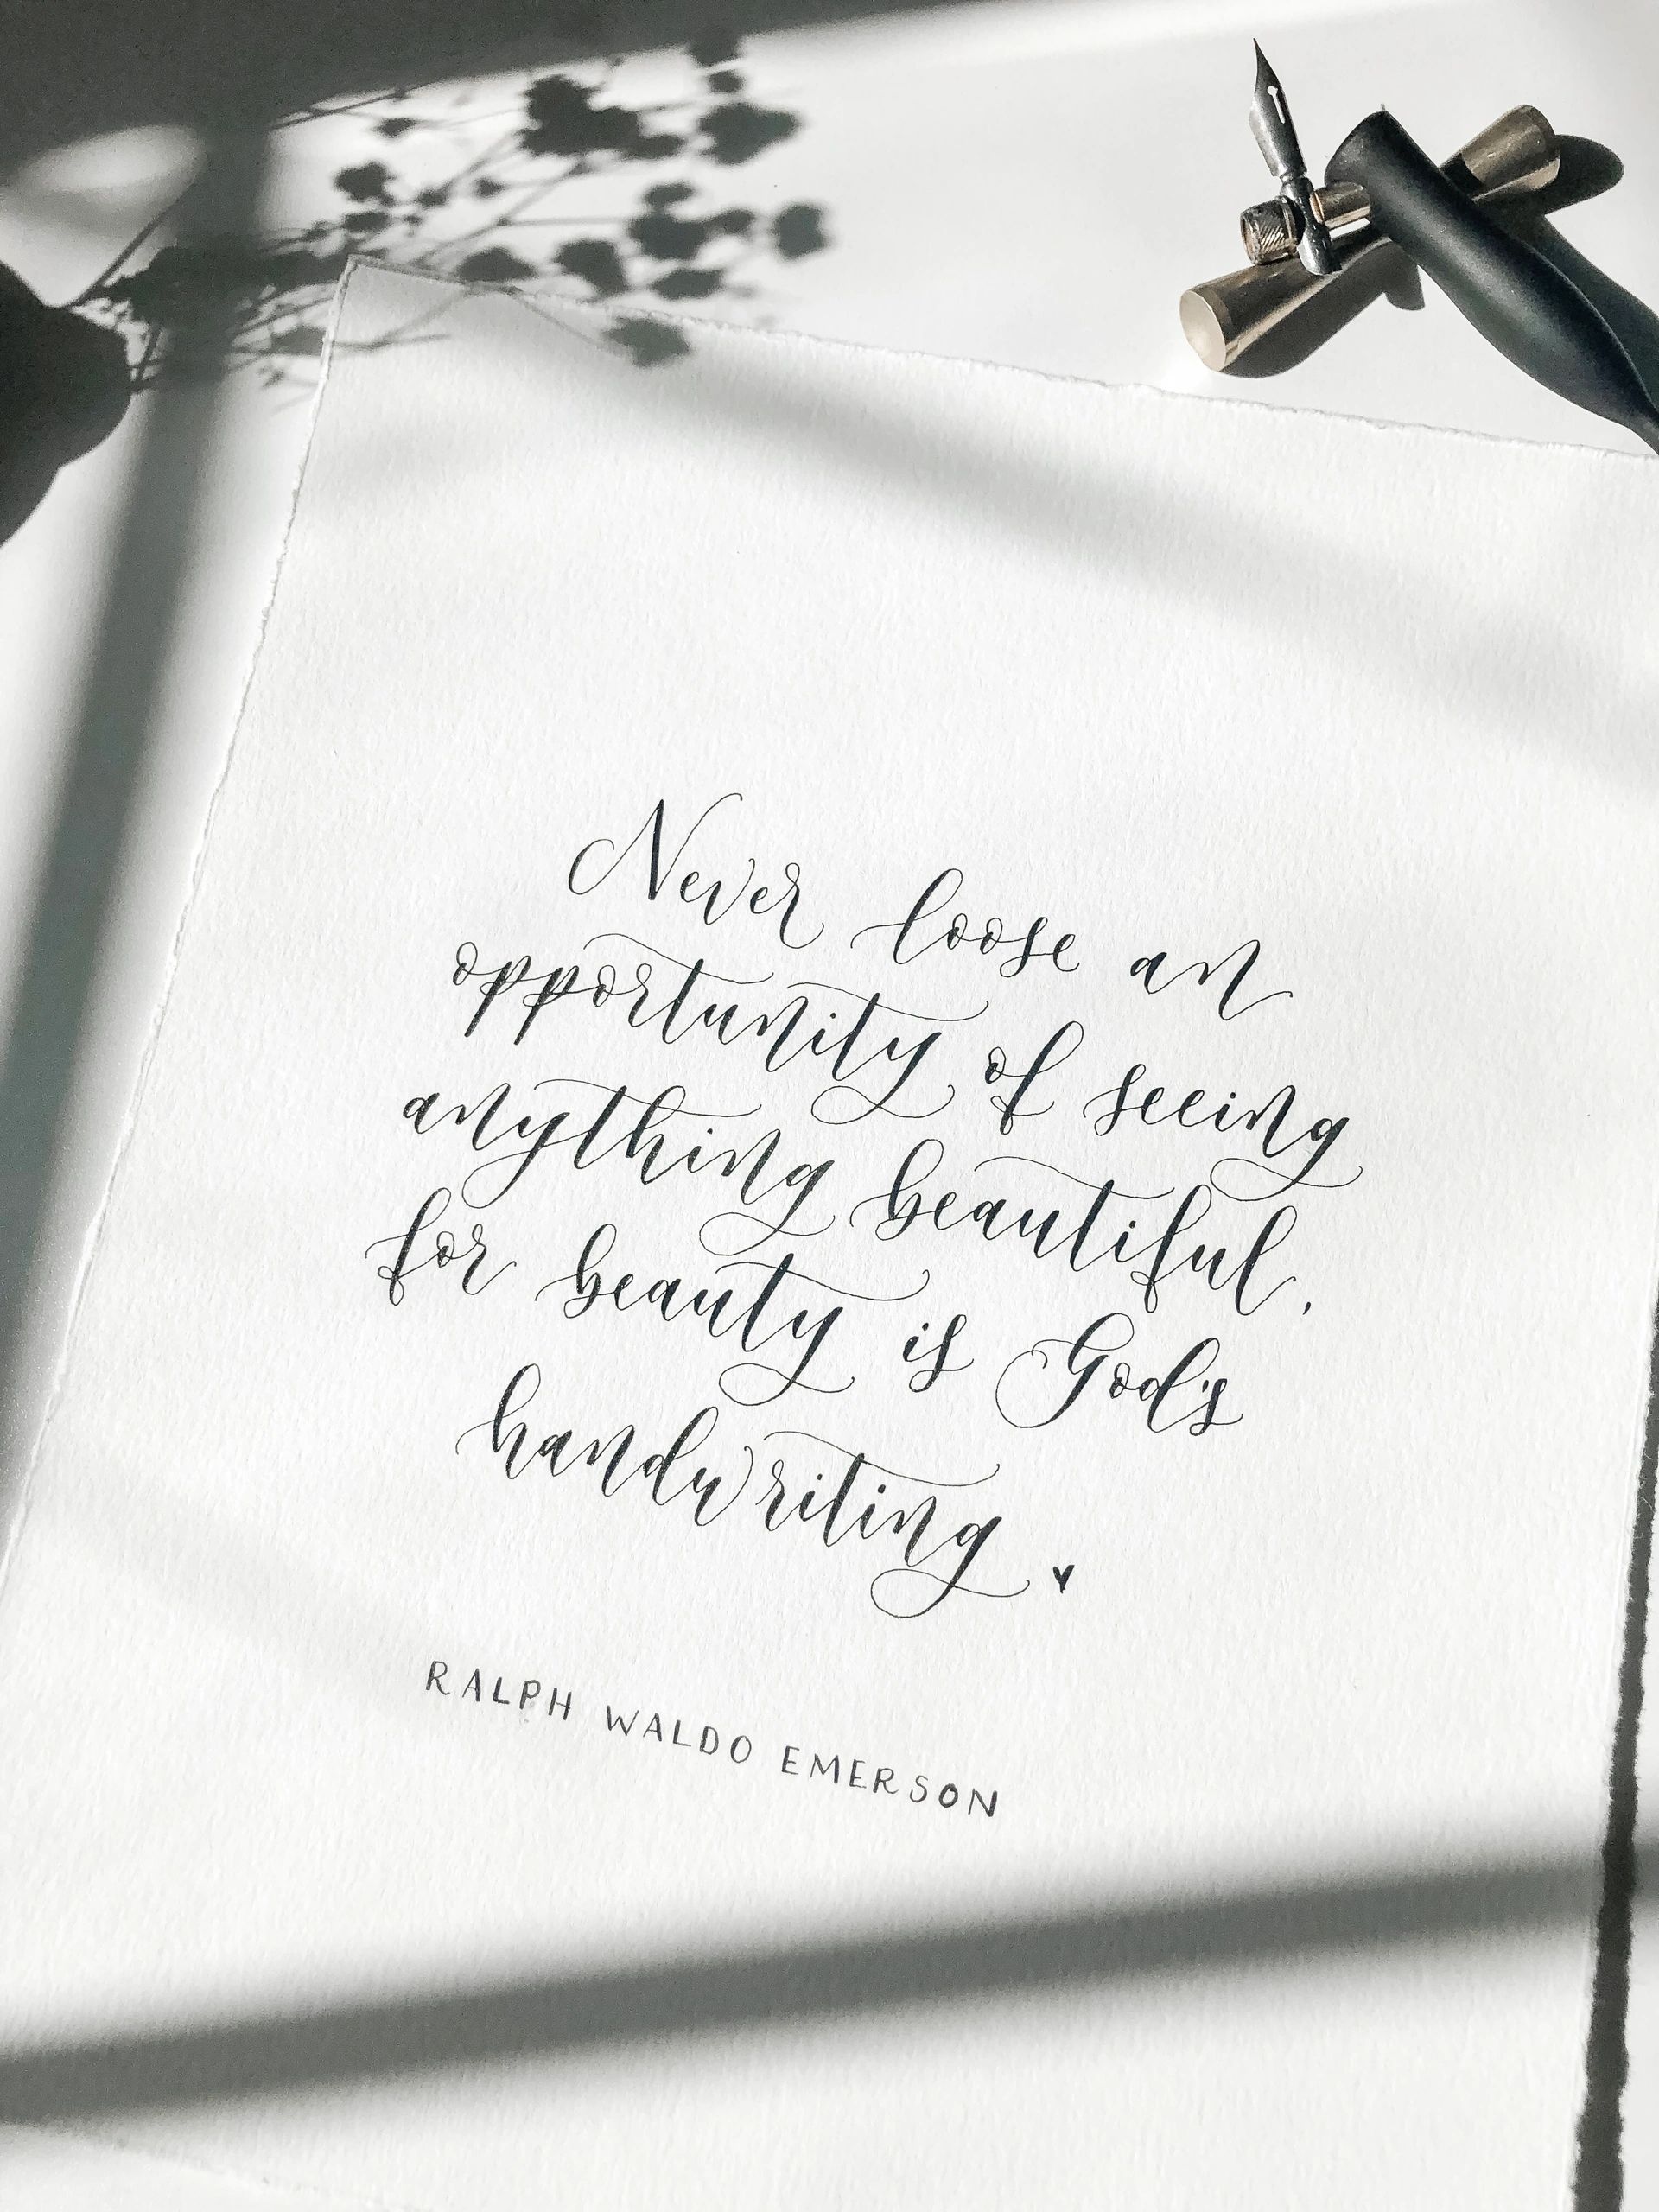 Never loose an
opportunity of seeing
anything beautiful,
for beauty is God's
handwriting
RALPH WALDO EMERSON